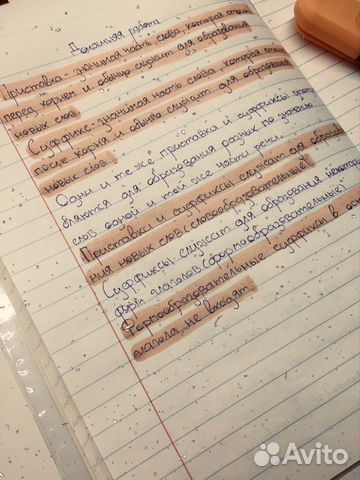 Домашняя работа
Приставка - значимая часть слова, которая стоит
перед корнем и обычно служит для образования
новых слов.
Суффикс - значимая часть слова, которая стоит
после корня и обычно служит для образования
новых слов.
Одни и те же приставки и суффиксы употре-
бляются для образования разных по значению
слов одной и той же части речи.
Приставки и суффиксы служат для образова-
ния новых слов (словообразовательные)
Суффиксы служат для образования некоторых
форм глаголов (формообразовательные)
Формообразовательные суффиксы в основу
глагола не входят.
Avito